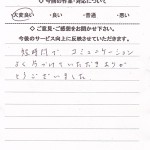 ◇ 今回の作業・対応について
大変良い ・良い ・普通 ・悪い
◇ ご意見・ご感想をお聞かせ下さい。
今後のサービス向上に反映させていただきます。
短時間で コミュニケーション
よく片づけていただきありが
とうございました。